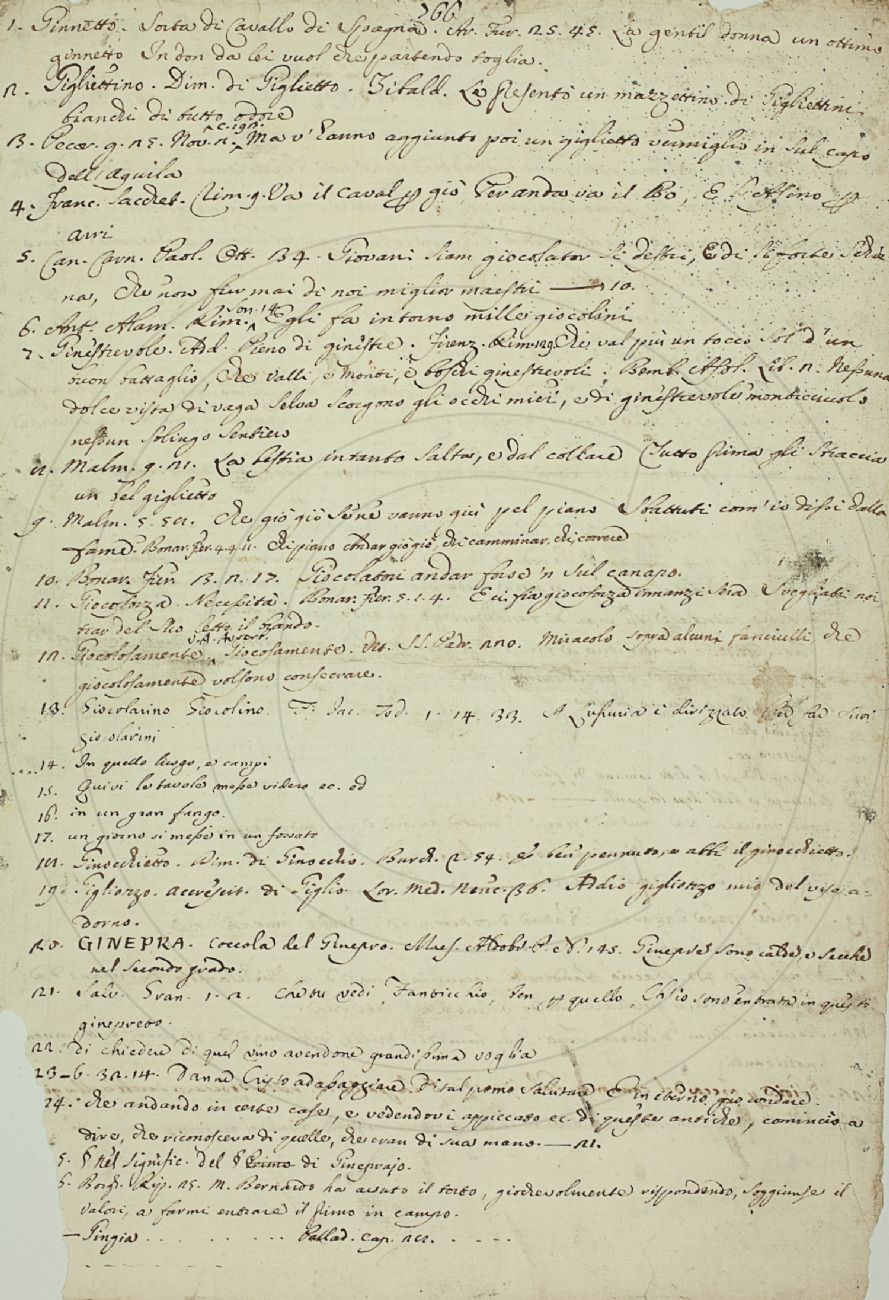 266
1. Ginnetto. Sorta di Cavallo di Spagna. Ar. Fur. 25. 45. La gentil donna un ottimo
ginnetto In don da lei vuol che partendo toglia.
2. Gigliettino. Dim. di Giglietto. Zibald. Le presentò un mazzettino di Gigliettini
bianchi di tutto odore
3. Pecor. g. 25. Nov. 2. c. 192. Ma v'hanno aggiunto poi un giglietto vermiglio in sul capo
dell'aquila
4. Franc. Sacchet. Rim. 9. Va il caval p giò, Per anda va il Bo, E l'Asino p
arri
5. Can. Carn. Paol. Ott. 34. Giovani siam giocolator sì destri, E di sì forte
na, che non fur mai di noi miglior maestri — 10.
6. Ant. Alam. Rim. son. 14 Egli fa intorno mille giocolini
7. Ginestrevole. Add. Pieno di ginestre. Firenz. Rim. 129. Che val più un tocco sol d'un
buon battaglio, che valli, e monti, e boschi ginestrevoli: Bemb. Asol. Lib. 2: Nessuna
dolce vista di vaga selva scorgono gli occhi miei, e di ginestrevole monticciuolo
nessun solingo sentiero
8. Malm. 9. 21. La bestia intanto salta, e dal collare Tutto prima gli straccia
un bel giglietto
9. Malm. 5. 58. Che giò giò se ne vanno giù pel piano Sbattuti com' io dissi dalla
fame. Bonar. Fier. 4. 4. 11. Chi piano andar giò giò, chi camminar, chi correre
10. Bonar. Fier. 3. 2. 17. Giocolatori andar forse 'n sul canapo.
11. Giocoforza. Necessità. Bonar. Fier. 5. 1. 4. E ci fia giocoforza Innanzi sera Svegliati noi
trar del sacco sotto il
12. Giocolosamente V. A. Avverb. Giocosamente. Vit. SS. Padr. 220. Miracolo sopra alcuni fanciulli che
giocolosamente volsono consecrare.
13. Giocolarino Giocolino. F. Jac. Tod. 1. 14. 33. A Lussuria è dirizzato suoi
giocolarini
14. In quello luogo, e campi
15. Quivi le tavole messe videro ec. od
16. in un gran fango.
17. un giorno si messe in un fossato
18. Ginocchietto. Dim. di Ginocchio. Burch. 2. 54. È ben pennuto, e abbi il ginocchietto.
19. Gigliozzo. accrescit. di Giglio. Lor. Med. Nenc. 36. Addio gigliozzo mio del viso a-
dorno.
20. GINEPRA. Coccola del Ginepro. Maes. Aldobr. P. N. 145. Ginepre sono calde, e secche
nel secondo grado.
21. Salv. Gran. 1. 2. Che tu vedi, Fanticchio, ten p quello, Ch'io sono entrata in questo
ginepreto.
22. di chiedere di quel vino avendone grandissima voglia
23 — 6. 32. 14. Danne Cristo ad assaggiare Di sul pomo salutare E in eterno giocondare.
24. che andando in certe case, e vedendovi appiccato ec. di queste antiche, cominciò a
dire, che riconosceva di quelle, che eran di sua mano. — 21.
5. § nel signific. del § Primo di Gineprajo.
6. Borgh. Rip. 25. M. Bernardo ha avuto il torto, giochevolmente rispondendo, soggiunse il
Valori, a farmi entrare il primo in campo.
— Gingia . . . . . . . . Ballad. cap. 28. . . . . .